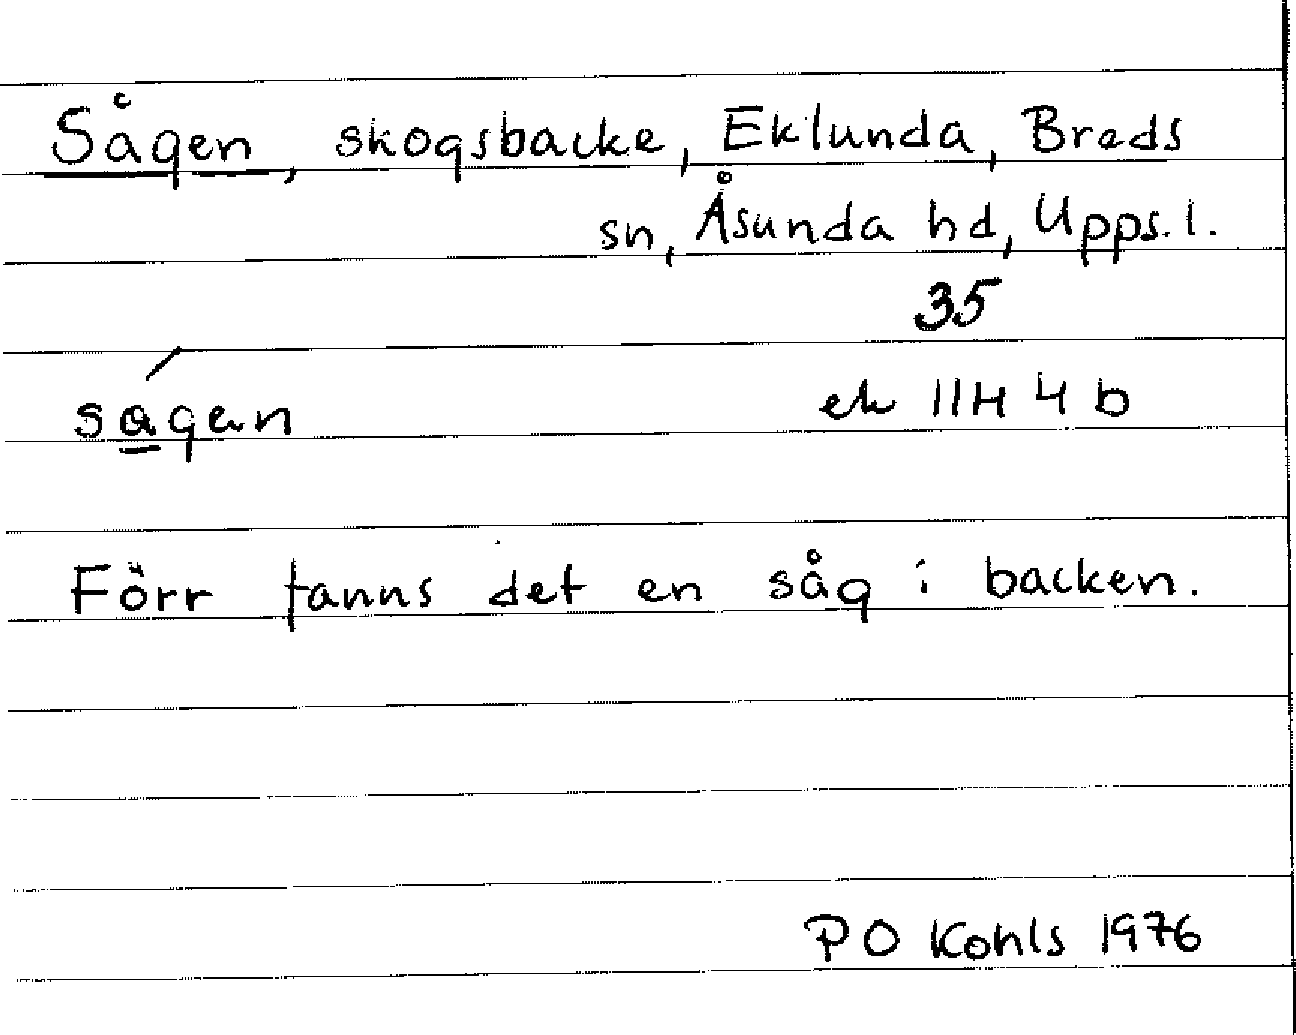 Sågen, skogsbacke, Eklunda, Breds
sn, Åsunda hd, Upps. l.
35
sagen
ek 11H 4 b
Förr fanns det en såg i backen.
P O Kohls 1976